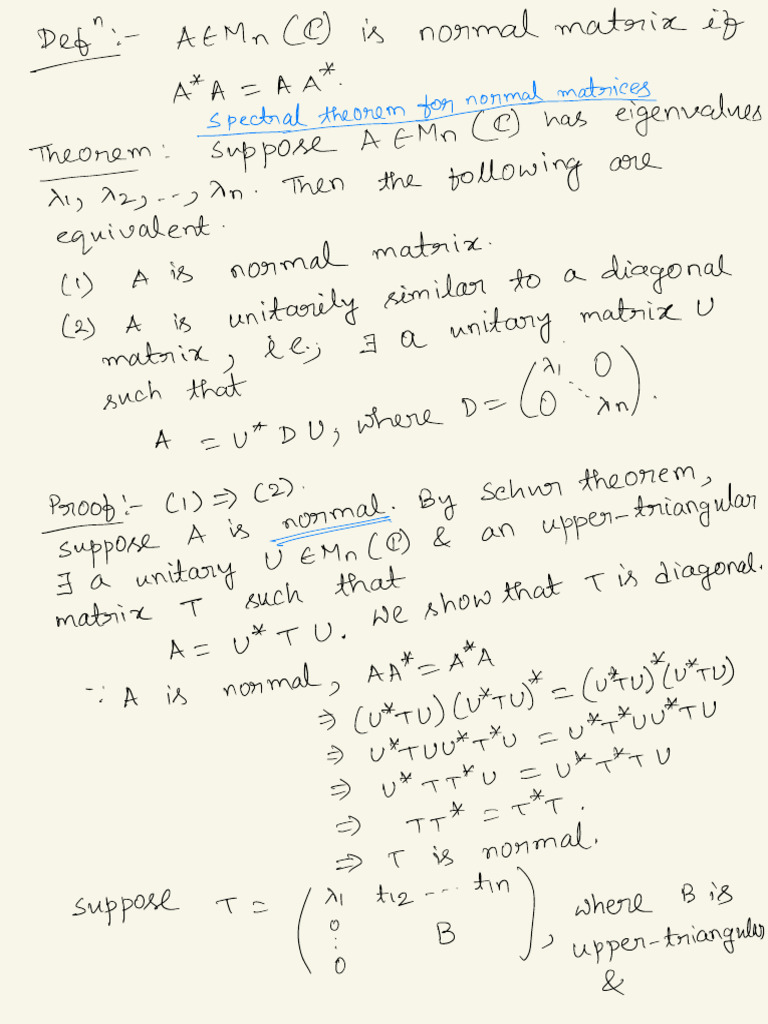 Defⁿ:- A∈Mn(ℂ) is normal matrix if
A*A = AA*.
Spectral theorem for normal matrices
Theorem: suppose A∈Mn(ℂ) has eigenvalues
λ₁, λ₂, ..., λn. Then the following are
equivalent.
(1) A is normal matrix.
(2) A is unitarily similar to a diagonal
matrix, i.e.; ∃ a unitary matrix U
such that
A = U*DU; where D = (λ₁ 0
0 ⋱ λn).
Proof:- (1)⇒(2).
suppose A is normal. By Schur theorem,
∃ a unitary U∈Mn(ℂ) & an upper-triangular
matrix T such that
A = U*TU. We show that T is diagonal.
∵ A is normal, AA* = A*A
⇒ (U*TU)(U*TU)* = (U*TU)*(U*TU)
⇒ U*TUU*T*U = U*T*UU*TU
⇒ U*TT*U = U*T*TU
⇒ TT* = T*T.
⇒ T is normal.
suppose T = (λ₁ t₁₂ ... t₁n
0
⋮ B
0), where B is
upper-triangular
&